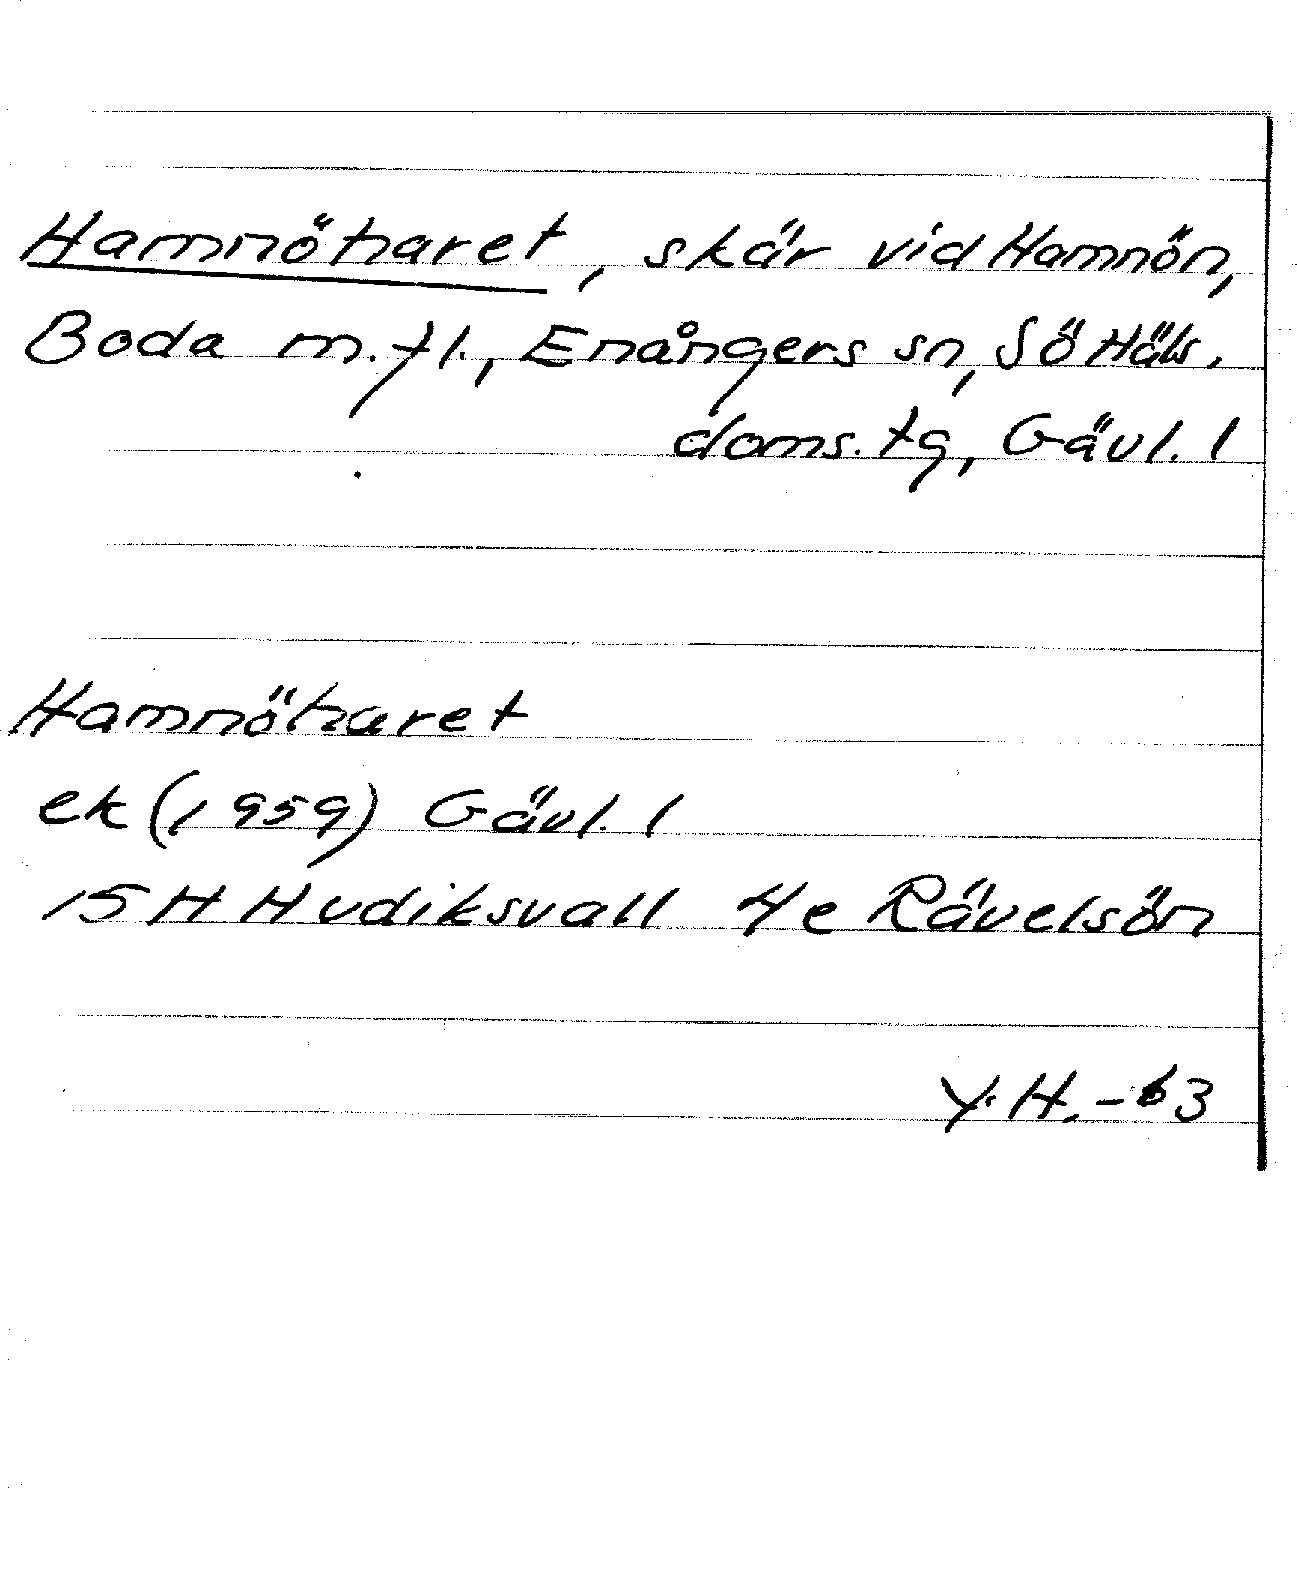 Hamnöharet, skär vid Hamnön,
Boda m.fl., Enångers sn, SÖ Häls.
doms. tg, Gävl. l
Hamnöharet
ek (1959) Gävl. l
15H Hudiksvall 4e Rävelsön
Y.H. -63